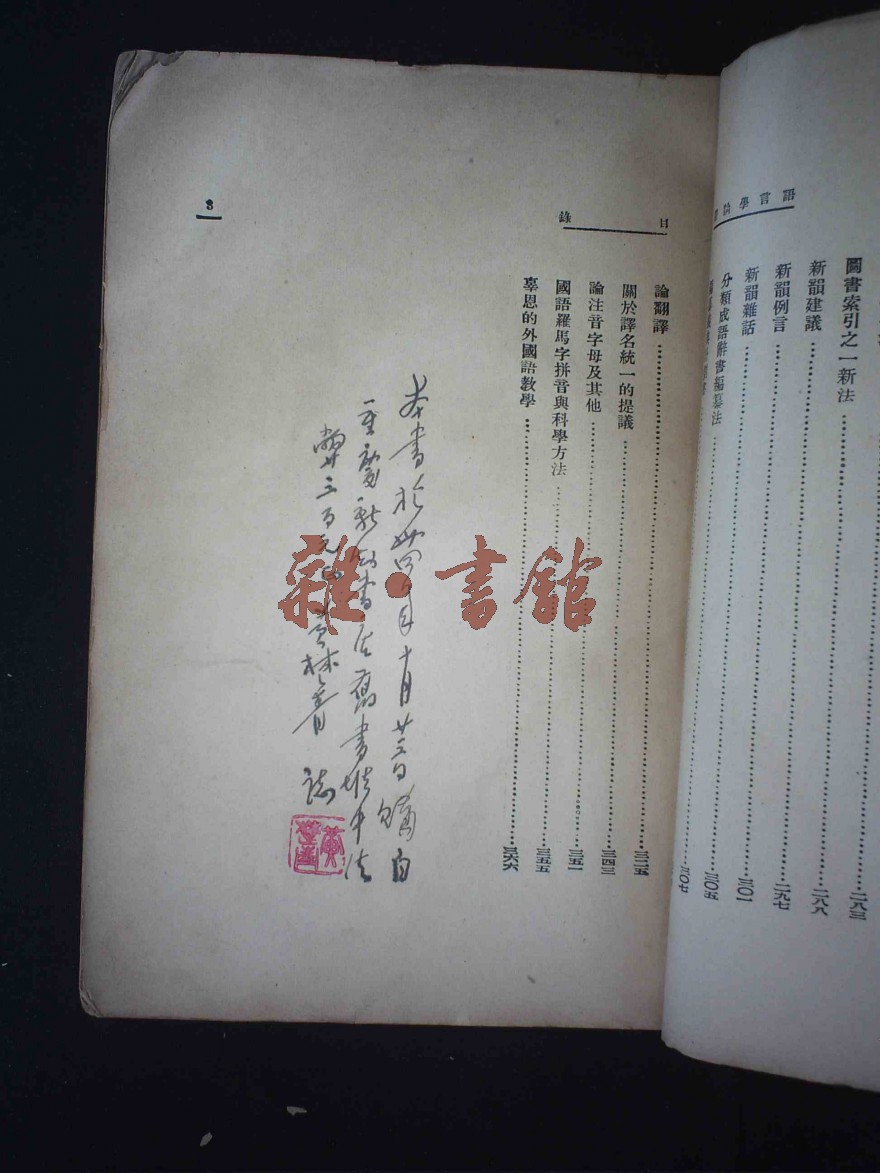 語言學論叢
圖書索引之一新法……二八三
新韻建議……二八八
新韻例言……二九七
新韻雜話……三〇一
分類成語辭書編纂法……三〇五
三〇七
目 錄
論翻譯……三二五
關於譯名統一的提議……三四三
論注音字母及其他……三五一
國語羅馬字拼音與科學方法……三五五
辜恩的外國語教學……三六六
3
本書於卅四年十月廿三日購自
重慶新知書店舊書攤中法
幣三百元 黃林青 誌
雜·書館